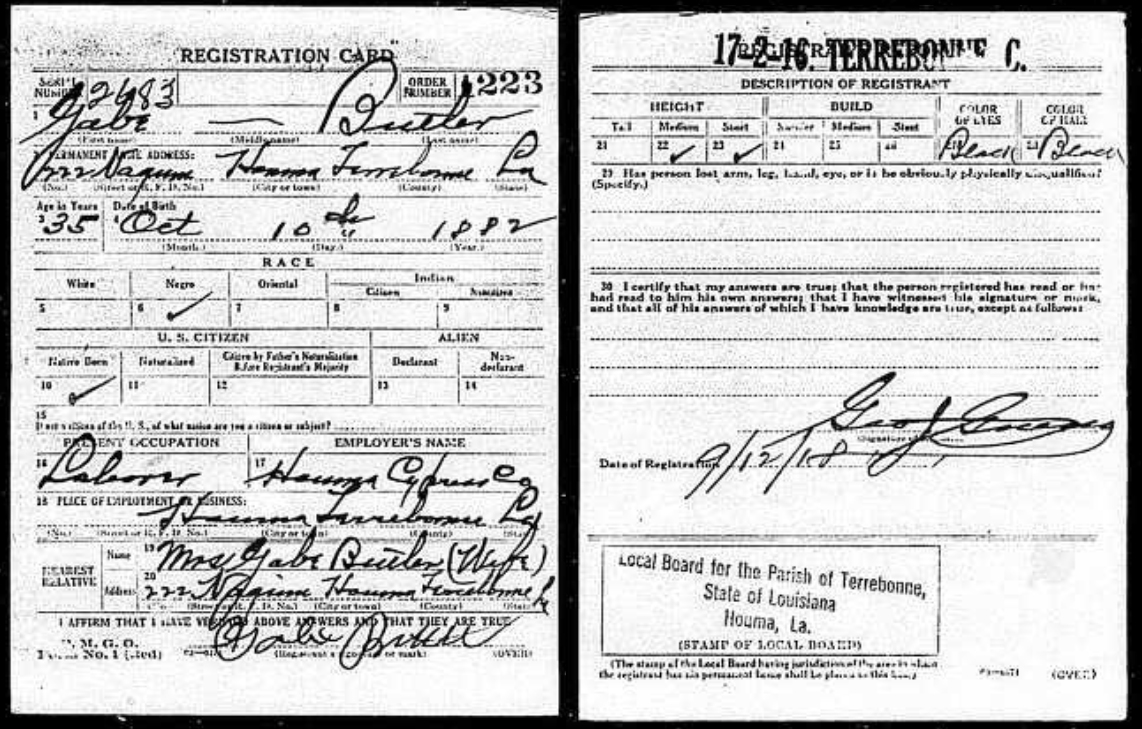 REGISTRATION CARD
SERIAL NUMBER 2683 ORDER NUMBER 1223
1 Gabe — Butler
(First name) (Middle name) (Last name)
PERMANENT HOME ADDRESS:
222 Houma Terrebonne La
(No.) (Street or R. F. D. No.) (City or town) (County) (State)
Age in Years Date of Birth
3 35 4 Oct 10th 1882
(Month.) (Day.) (Year.)
RACE
White Negro Oriental Indian
Citizen Noncitizen
5 6 ✓ 7 8 9
U. S. CITIZEN ALIEN
Native Born Naturalized Citizen by Father's Naturalization Before Registrant's Majority Declarant Non-declarant
10 ✓ 11 12 13 14
15
If not a citizen of the U. S., of what nation are you a citizen or subject?
PRESENT OCCUPATION EMPLOYER'S NAME
16 Laborer 17 Houma Cypress Co
18 PLACE OF EMPLOYMENT OR BUSINESS:
Houma Terrebonne La
(No.) (Street or R. F. D. No.) (City or town) (County) (State)
NEAREST RELATIVE
Name 19 Mrs Gabe Butler (Wife)
Address 20 222 Houma Terrebonne La
(No.) (Street or R. F. D. No.) (City or town) (County) (State)
I AFFIRM THAT I HAVE VERIFIED ABOVE ANSWERS AND THAT THEY ARE TRUE
P. M. G. O.
Form No. 1 (Red) Gabe Butler
(Registrant's signature or mark) (OVER)
REGISTRAR'S REPORT
17-2-16. TERREBONNE C.
DESCRIPTION OF REGISTRANT
HEIGHT BUILD COLOR OF EYES COLOR OF HAIR
Tall Medium Short Slender Medium Stout
21 22 ✓ 23 ✓ 24 25 26 27 Black 28 Black
29 Has person lost arm, leg, hand, eye, or is he obviously physically disqualified?
(Specify.)
30 I certify that my answers are true; that the person registered has read or has
had read to him his own answers; that I have witnessed his signature or mark,
and that all of his answers of which I have knowledge are true, except as follows:
Geo J
Date of Registration 9/12/18
Local Board for the Parish of Terrebonne,
State of Louisiana
Houma, La.
(STAMP OF LOCAL BOARD)
(The stamp of the Local Board having jurisdiction of the area in which
the registrant has his permanent home shall be placed in this box.)
(OVER)